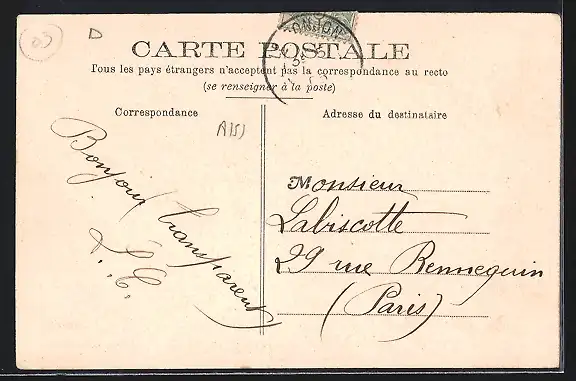 CARTE POSTALE
Tous les pays étrangers n'acceptent pas la correspondance au recto
(se renseigner à la poste)
Correspondance
Adresse du destinataire
Bonjour transparent
L. C.
Monsieur
Labiscotte
29 rue Bennequin
(Paris)
A151
D